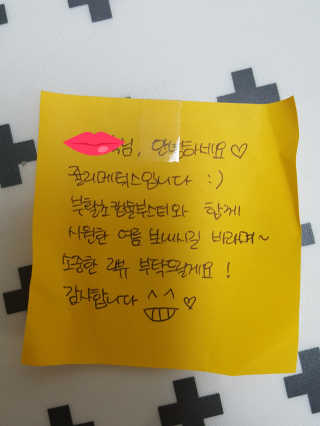 님, 안녕하세요♡
쥴리메틱스입니다 :)
함께
시원한 여름 보내시길 바라며~
소중한 리뷰 부탁드릴게요!
감사합니다 ^^ ♡